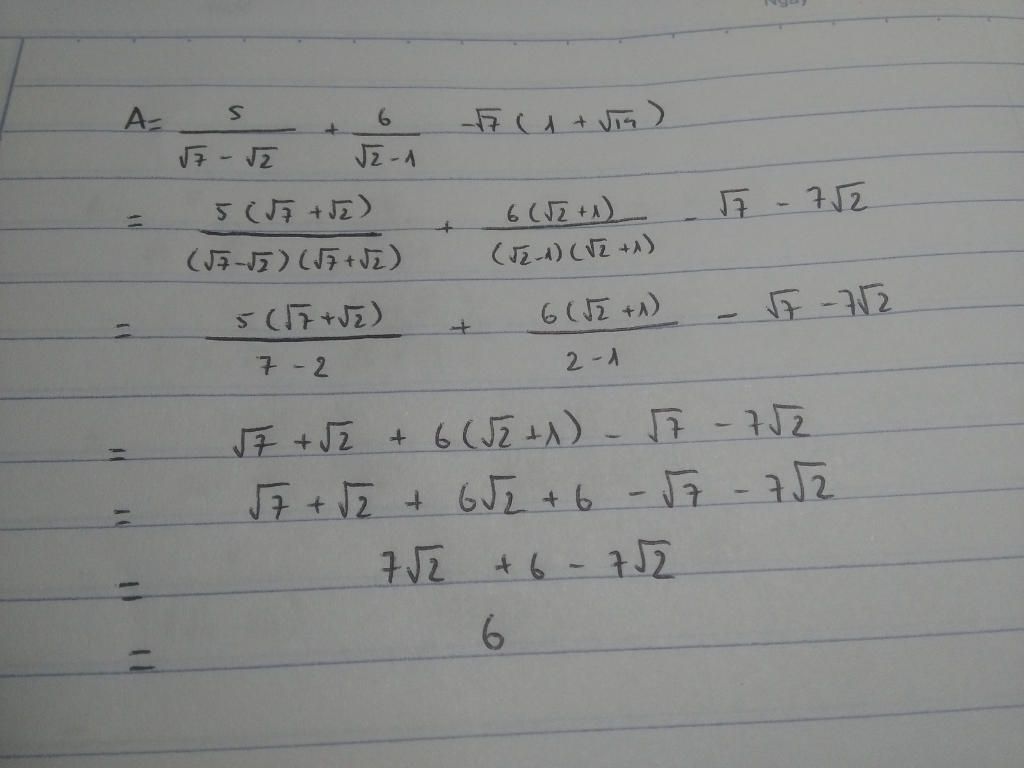 Ngày
A = 5/(√7 - √2) + 6/(√2 - 1) - √7 ( 1 + √14 )
= 5(√7 + √2)/((√7 - √2)(√7 + √2)) + 6(√2 + 1)/((√2 - 1)(√2 + 1)) - √7 - 7√2
= 5(√7 + √2)/(7 - 2) + 6(√2 + 1)/(2 - 1) - √7 - 7√2
= √7 + √2 + 6(√2 + 1) - √7 - 7√2
= √7 + √2 + 6√2 + 6 - √7 - 7√2
= 7√2 + 6 - 7√2
= 6